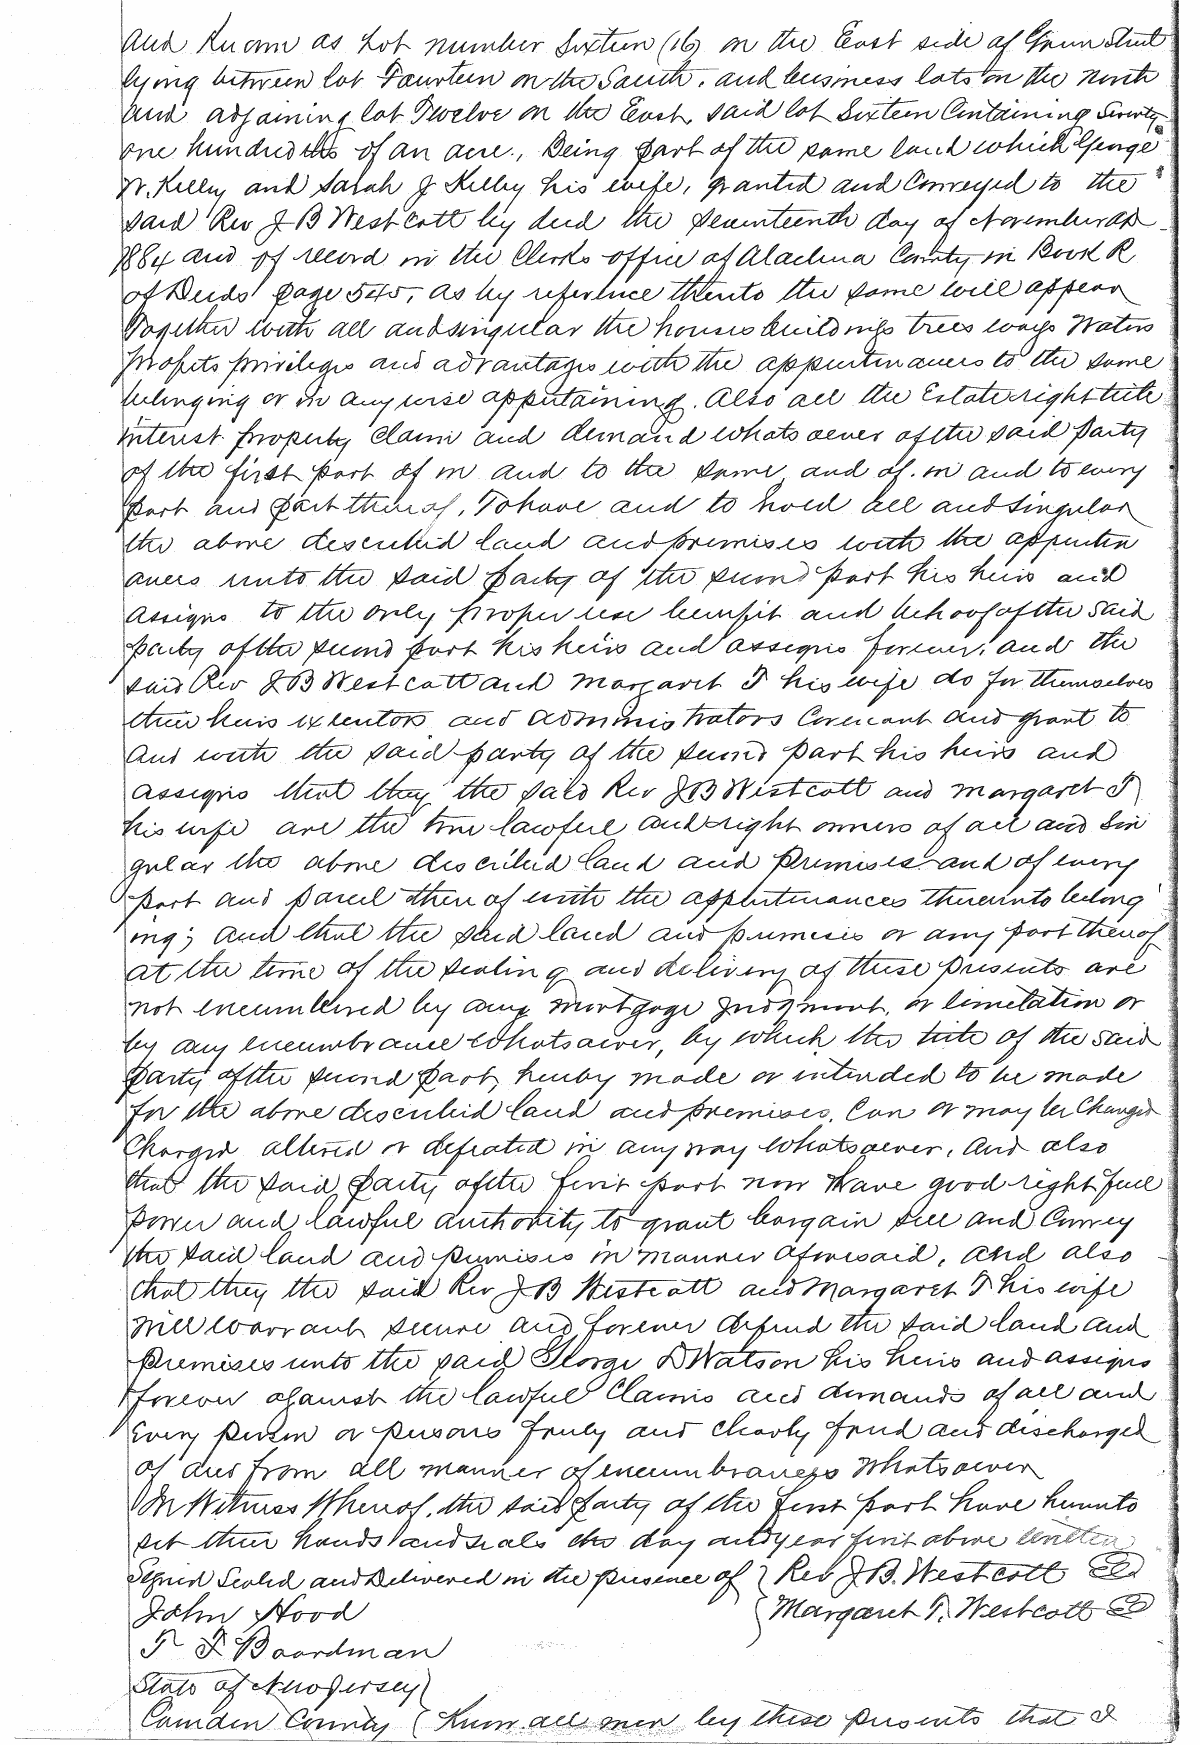 And Known as Lot number Sixteen (16) on the East side of Green Street
lying between lot Fourteen on the South, and business lots on the north
and adjoining lot Twelve on the East, said lot Sixteen Containing Seventy
one hundredths of an acre, Being part of the same land which George
W. Kelly and Sarah J Kelley his wife, granted and Conveyed to the
said Rev J B Westcott by deed the seventeenth day of November AD
1884 and of record in the Clerks office of Alachua County in Book R
of Deeds page 545, as by reference thereto the same will appear
Together with all and singular the houses buildings trees ways Waters
profits privileges and advantages with the appurtenances to the same
belonging or in any wise appertaining. Also all the Estate right title
interest property Claim and demand whatsoever of the said Party
of the first part of in and to the same, and of, in and to every
part and part thereof, To have and to hold all and singular
the above described land and premises with the appurten
ances unto the said party of the second part his heirs and
assigns to the only proper use benefit and behoof of the said
party of the second part his heirs and assigns forever, and the
said Rev J B Westcott and Margaret T his wife do for themselves
their heirs executors and administrators Covenant and grant to
and with the said party of the second part his heirs and
assigns that they the said Rev J B Westcott and Margaret T
his wife are the true lawful and right owners of all and Sin
gular the above described land and premises and of every
part and parcel thereof with the appurtenances thereunto belong
ing; and that the said land and premises or any part thereof
at the time of the sealing and delivery of these presents are
not encumbered by any mortgage judgment, or limitation or
by any encumbrance whatsoever, by which the title of the said
party of the second part, hereby made or intended to be made
for the above described land and premises, Can or may be Changed
Charged altered or defeated in any way whatsoever, And also
that the said party of the first part now Have good right full
power and lawful authority to grant bargain sell and Convey
the said land and premises in manner aforesaid, and also
that they the said Rev J B Westcott and Margaret T his wife
Will warrant secure and forever defend the said land and
premises unto the said George D Watson his heirs and assigns
forever against the lawful Claims and demands of all and
Every person or persons freely and clearly freed and discharged
of and from all manner of encumbrances whatsoever
In Witness Whereof, the said party of the first part have hereunto
set their hands and seals the day and year first above written
Signed Sealed and Delivered in the presence of } Rev J. B. Westcott
John Hood { Margaret T. Westcott
T F Boardman
State of New Jersey }
Camden County { Know all men by these presents that I